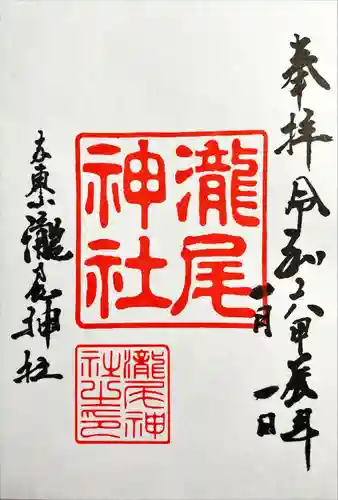 奉拝
令和六甲辰年
一月
一日
瀧尾
神社
瀧尾神
社之印
京東 瀧尾神社